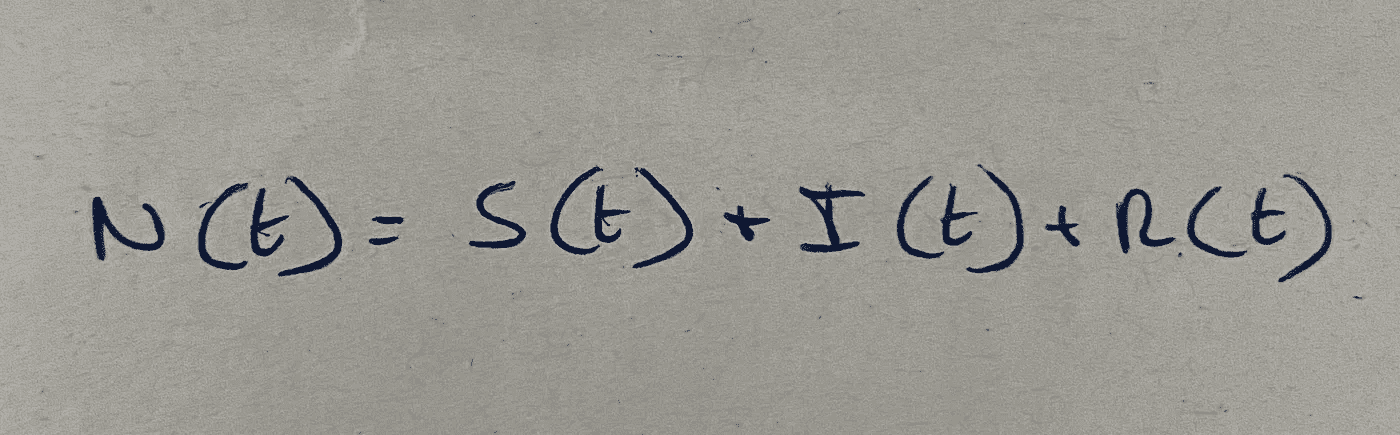 N(t) = S(t) + I(t) + R(t)